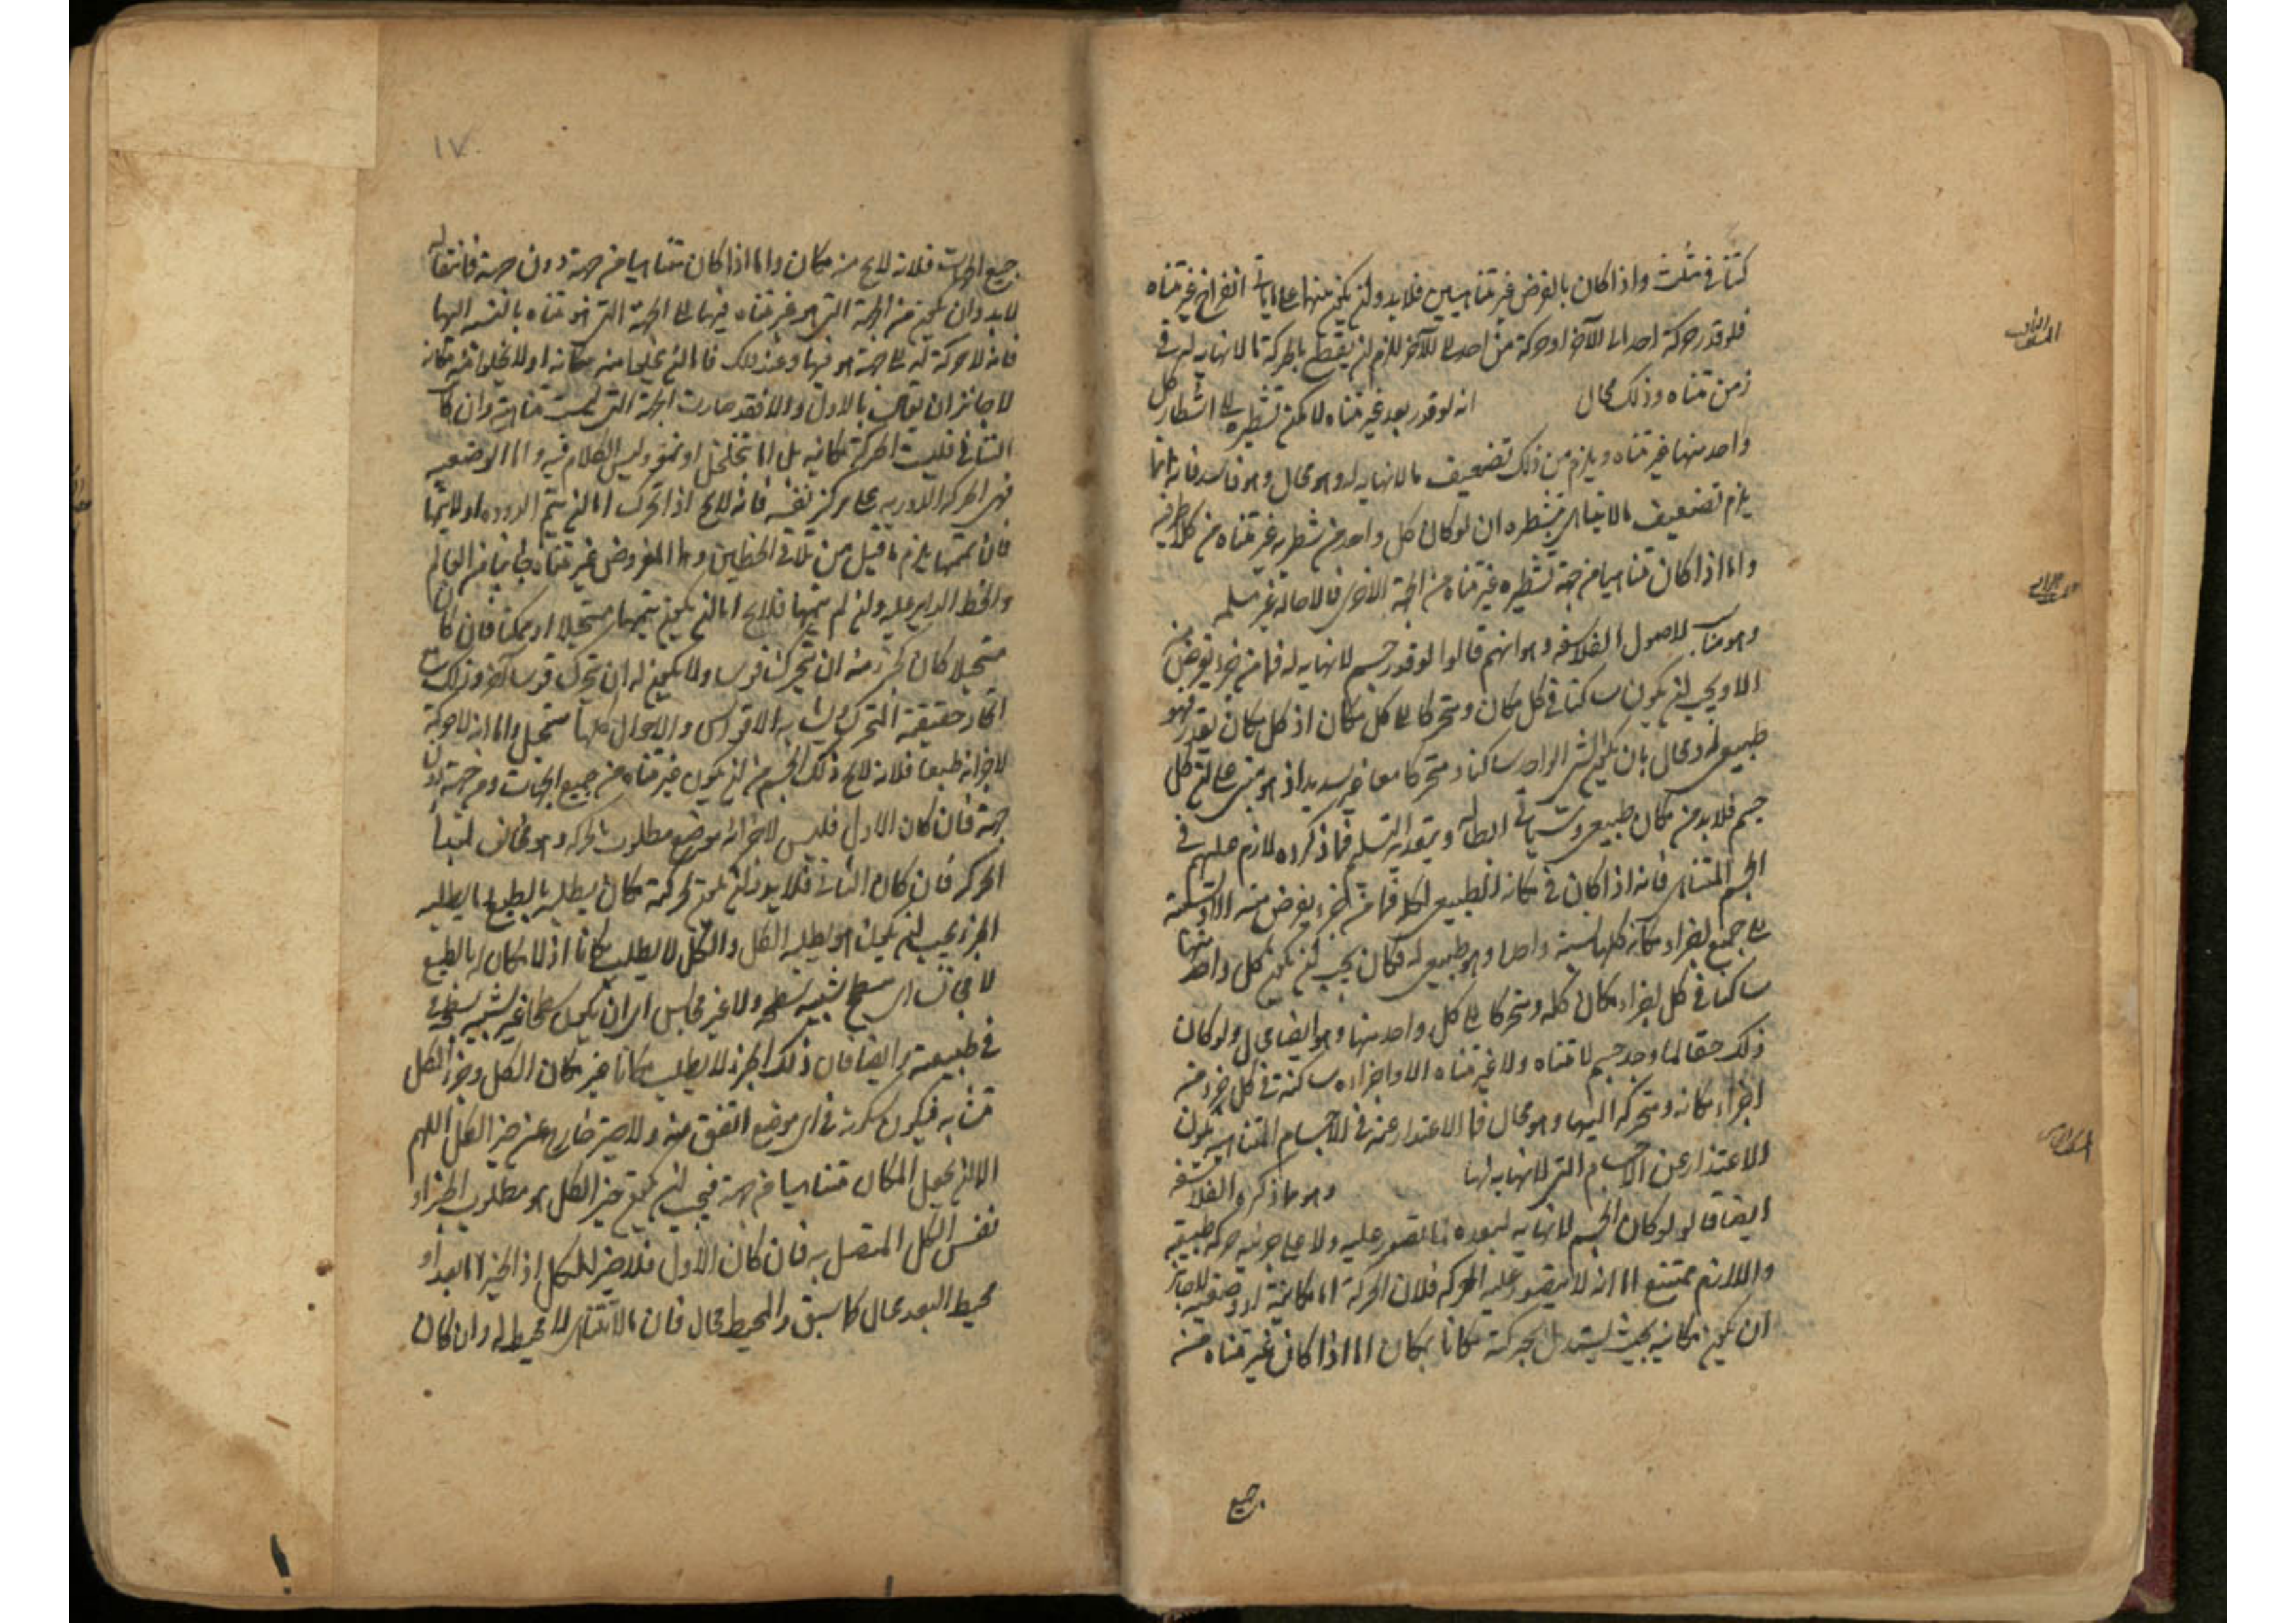 كثنائي مثلث واذا كان بالفرض غير متناهيين فلا بد وان يكون منها على ما يأتي انفراج غير متناه
فلو قدر حركة احد الى الآخر او حركة من احد الى الآخر للزم ان يقطع بالحركة ما لا نهاية له في
زمن متناه وذلك محال انه لو قدر بعد غير متناه لامكن تشطيره الى اشطار كل
واحد منها غير متناه ويلزم من ذلك تضعيف ما لا نهاية له وهو محال وهو فاسد فانه انما
يلزم تضعيف ما لا يتناهى بتشطيره ان لو كان كل واحد من شطريه غير متناه من كلا طرفيه
واما اذا كان متناهيا من جهة تشطيره غير متناه من الجهة الاخرى فالاحالة غير مسلمة
وهو مناسب لاصول الفلاسفة وهو انهم قالوا لو قدر جسم لا نهاية له فما من جزء يفرض منه
الا ويجب ان يكون ساكنا في كل مكان ومتحركا الى كل مكان اذ كل مكان يقدر فهو
طبيعي له ومحال بان يكون الشئ الواحد ساكنا ومتحركا معا غير سديد اذ هو مبنى على ان كل
جسم فلا بد من مكان طبيعي وسيأتي ابطاله وبتقدير التسليم فما ذكروه لازم عليهم في
الجسم المتناهى فانه اذا كان في مكانه الطبيعي لكله فما من جزء يفرض منه الا ونسبته
الى جميع اجزاء مكانه كلها نسبة واحدة وهو طبيعي له فكان يجب ان يكون كل واحد منها
ساكنا في كل اجزاء مكان كله ومتحركا الى كل واحد منها وهو ايضا محال ولو كان
ذلك حقا لما وجد جسم لا متناه ولا غير متناه الا واجزاءه ساكنة في كل جزء من
اجزاء مكانه ومتحركة اليها وهو محال فما الاعتذار عنه في الاجسام المتناهية يكون
الاعتذار عن الاجسام التي لا نهاية لها وهو ما ذكره الفلاسفة
ايضا قالوا لو كان الجسم لا نهاية لبعده لما تصور عليه ولا على جزئه حركة طبيعية
واللازم ممتنع اما انه لا يتصور عليه الحركة فلان الحركة اما مكانية او وضعية لا جائز
ان يكون مكانية بحيث يستبدل بحركته مكانا بمكان اما اذا كان غير متناه من
جميع
١٧
جميع الجهات فلانه لا يخ منه مكان واما اذا كان متناهيا من جهة دون جهة فانتقاله
لا بد وان يكون من الجهة التي هو غير متناه فيها الى الجهة التي هو متناه بالنسبة اليها
فانه لا حركة له الى جهة هو فيها وعند ذلك فاما ان يخلى منه مكانه او لا يخلى منه مكانه
لا جائز ان يقال بالاول والا فقد صارت الجهة التي ليست متناهية وان كان
الثاني فليست الحركة مكانية بل اما بتخلخل او نمو وليس الكلام فيه واما الوضعية
فهى الحركة الدورية على مركز نفسه فانه لا يخ اذا تحرك اما ان يتم الدورة او لا يتمها
فان تممها يلزم ما قيل من تلاقى الخطين وهما المفروض غير متناه جانبا من العالم
والخط الدائر عليه وان لم يتمها فلا يخ اما ان يكون تتميمها مستحيلا او ممكنا فان كان
مستحيلا كان لجزء منه ان يتحرك قوسا ولا يكون له ان يتحرك قوسا آخر وذلك مع
اتحاد حقيقة المتحرك وتشابه الاقواس والاحوال كلها مستحيل واما انه لا حركة
لاجزائه طبعا فلانه لا يخ ذلك الجسم من ان يكون غير متناه من جميع الجهات او من جهة دون
جهة فان كان الاول فليس لاجزائه موضع مطلوب بالحركة وهو مخالف لمبدأ
الحركة فان كان الثاني فلا بد وان يكون لحركته مكان يطلبه بالطبع وما يطلبه
الجزء يجب ان يكون هو ما يطلبه الكل والكل لا يطلب مكانا اذ لا مكان له بالطبع
لا مجانس اى سطح شبيه بسطحه ولا غير مجانس اى ان يكون سطحا غير شبيه بسطحه
في طبيعته وايضا فان ذلك الجزء لا يطلب مكانا غير مكان الكل وجزء الكل
متشابه فيكون سكونه في اى موضع اتفق منه ولا حيز خارج عن حيز الكل اللهم
الا ان يجعل المكان متناهيا من جهة فيجب ان يكون حيز الكل هو مطلوب الجزء او
نفس الكل المتصل به فان كان الاول فلا حيز للكل اذ الحيز اما بعد او
محيط البعد محال كما سبق والمحيط محال فان ما لا يتناهى لا محيط له وان كان